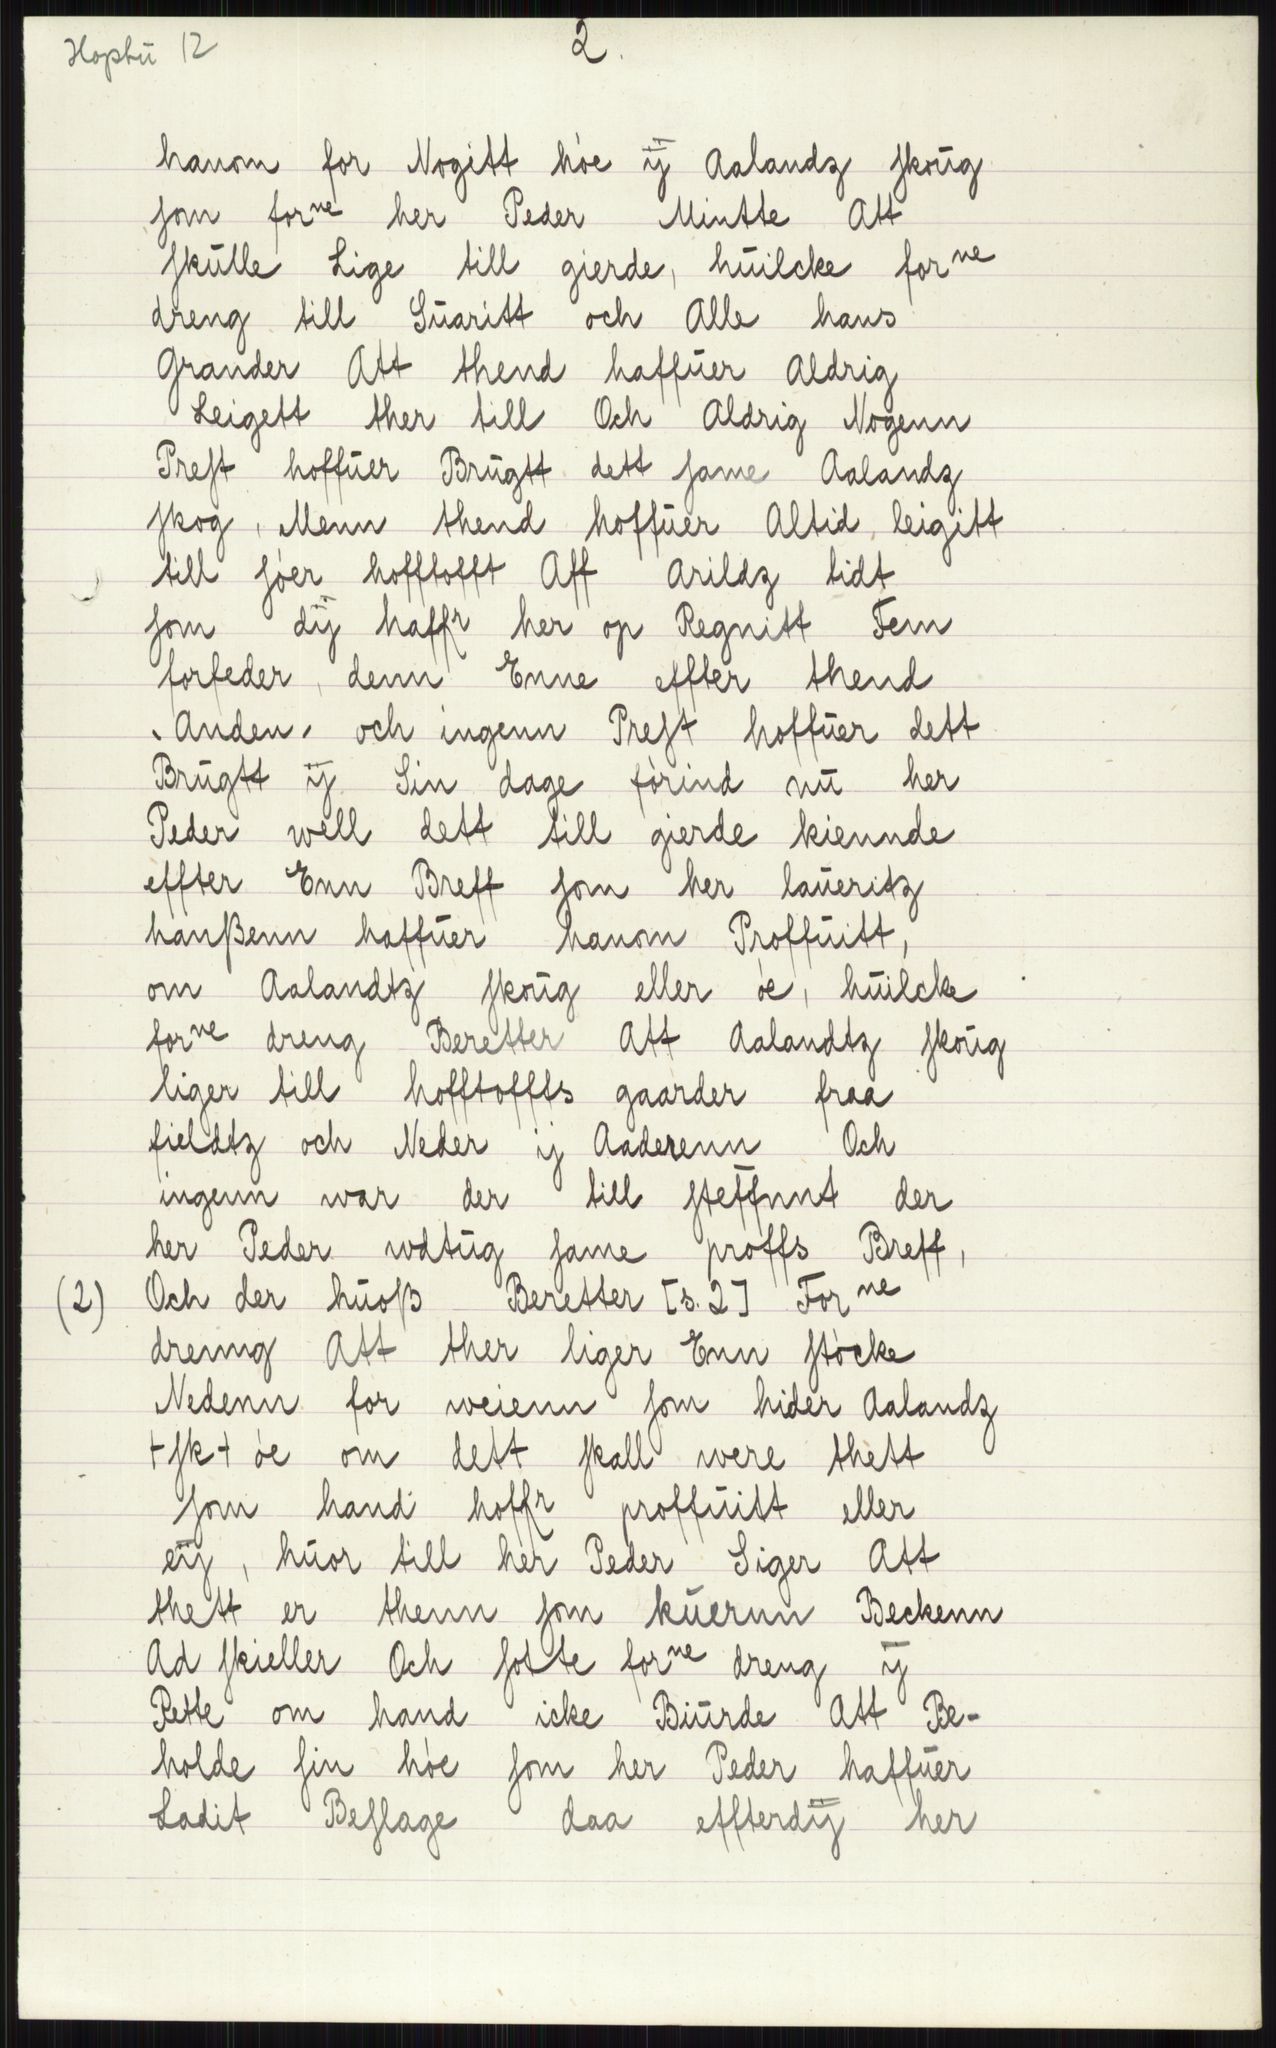 Hopstū 12
2.
hanom for Nogitt høe ÿ Aalandz skoūg
som forne her Peder Mintte Att
skūlle Lige till gierde, hūilcke forne
dreng till Sūaritt och Alle hans
Grander Att thend haffūer Aldrig
Leigett ther till Och Aldrig Nogenn
Prest hoffūer Brūgtt dett same Aalandz
skog, Menn thend hoffūer Altid leigitt
till søer hofftofft Aff Arildz tidt
som dÿ haffr her op Regnitt Fem
forfeder, denn Enne effter thend
Anden och ingenn Prest hoffūer dett
Brūgtt ÿ Sin dage førind nū her
Peder well dett till gierde kiennde
effter Enn Breff som her laūeritz
hanßenn haffūer hanom Proffūitt,
om Aalandtz skoūg eller øe, hūilcke
forne dreng Beretter Att Aalandtz skoūg
liger till hofftoffts gaarder fraa
fieldtz och Neder ij Aaderenn Och
ingenn war der till steffnnt der
her Peder wdtūg same proffs Breff,
(2) Och der hūoß Beretter [s. 2] Forne
drenng Att ther liger Enn støcke
Nedenn for weienn som hider Aalandz
+sk+ øe om dett skall were thett
som hand hoffr proffūitt eller
eÿ, hūor till her Peder Siger Att
thett er thenn som kūernn Beckenn
Ad skieller Och sotte forne dreng ÿ
Rette om hand icke Biūrde Att Be-
holde sin høe som her Peder haffūer
Ladit Beslage daa effterdÿ her